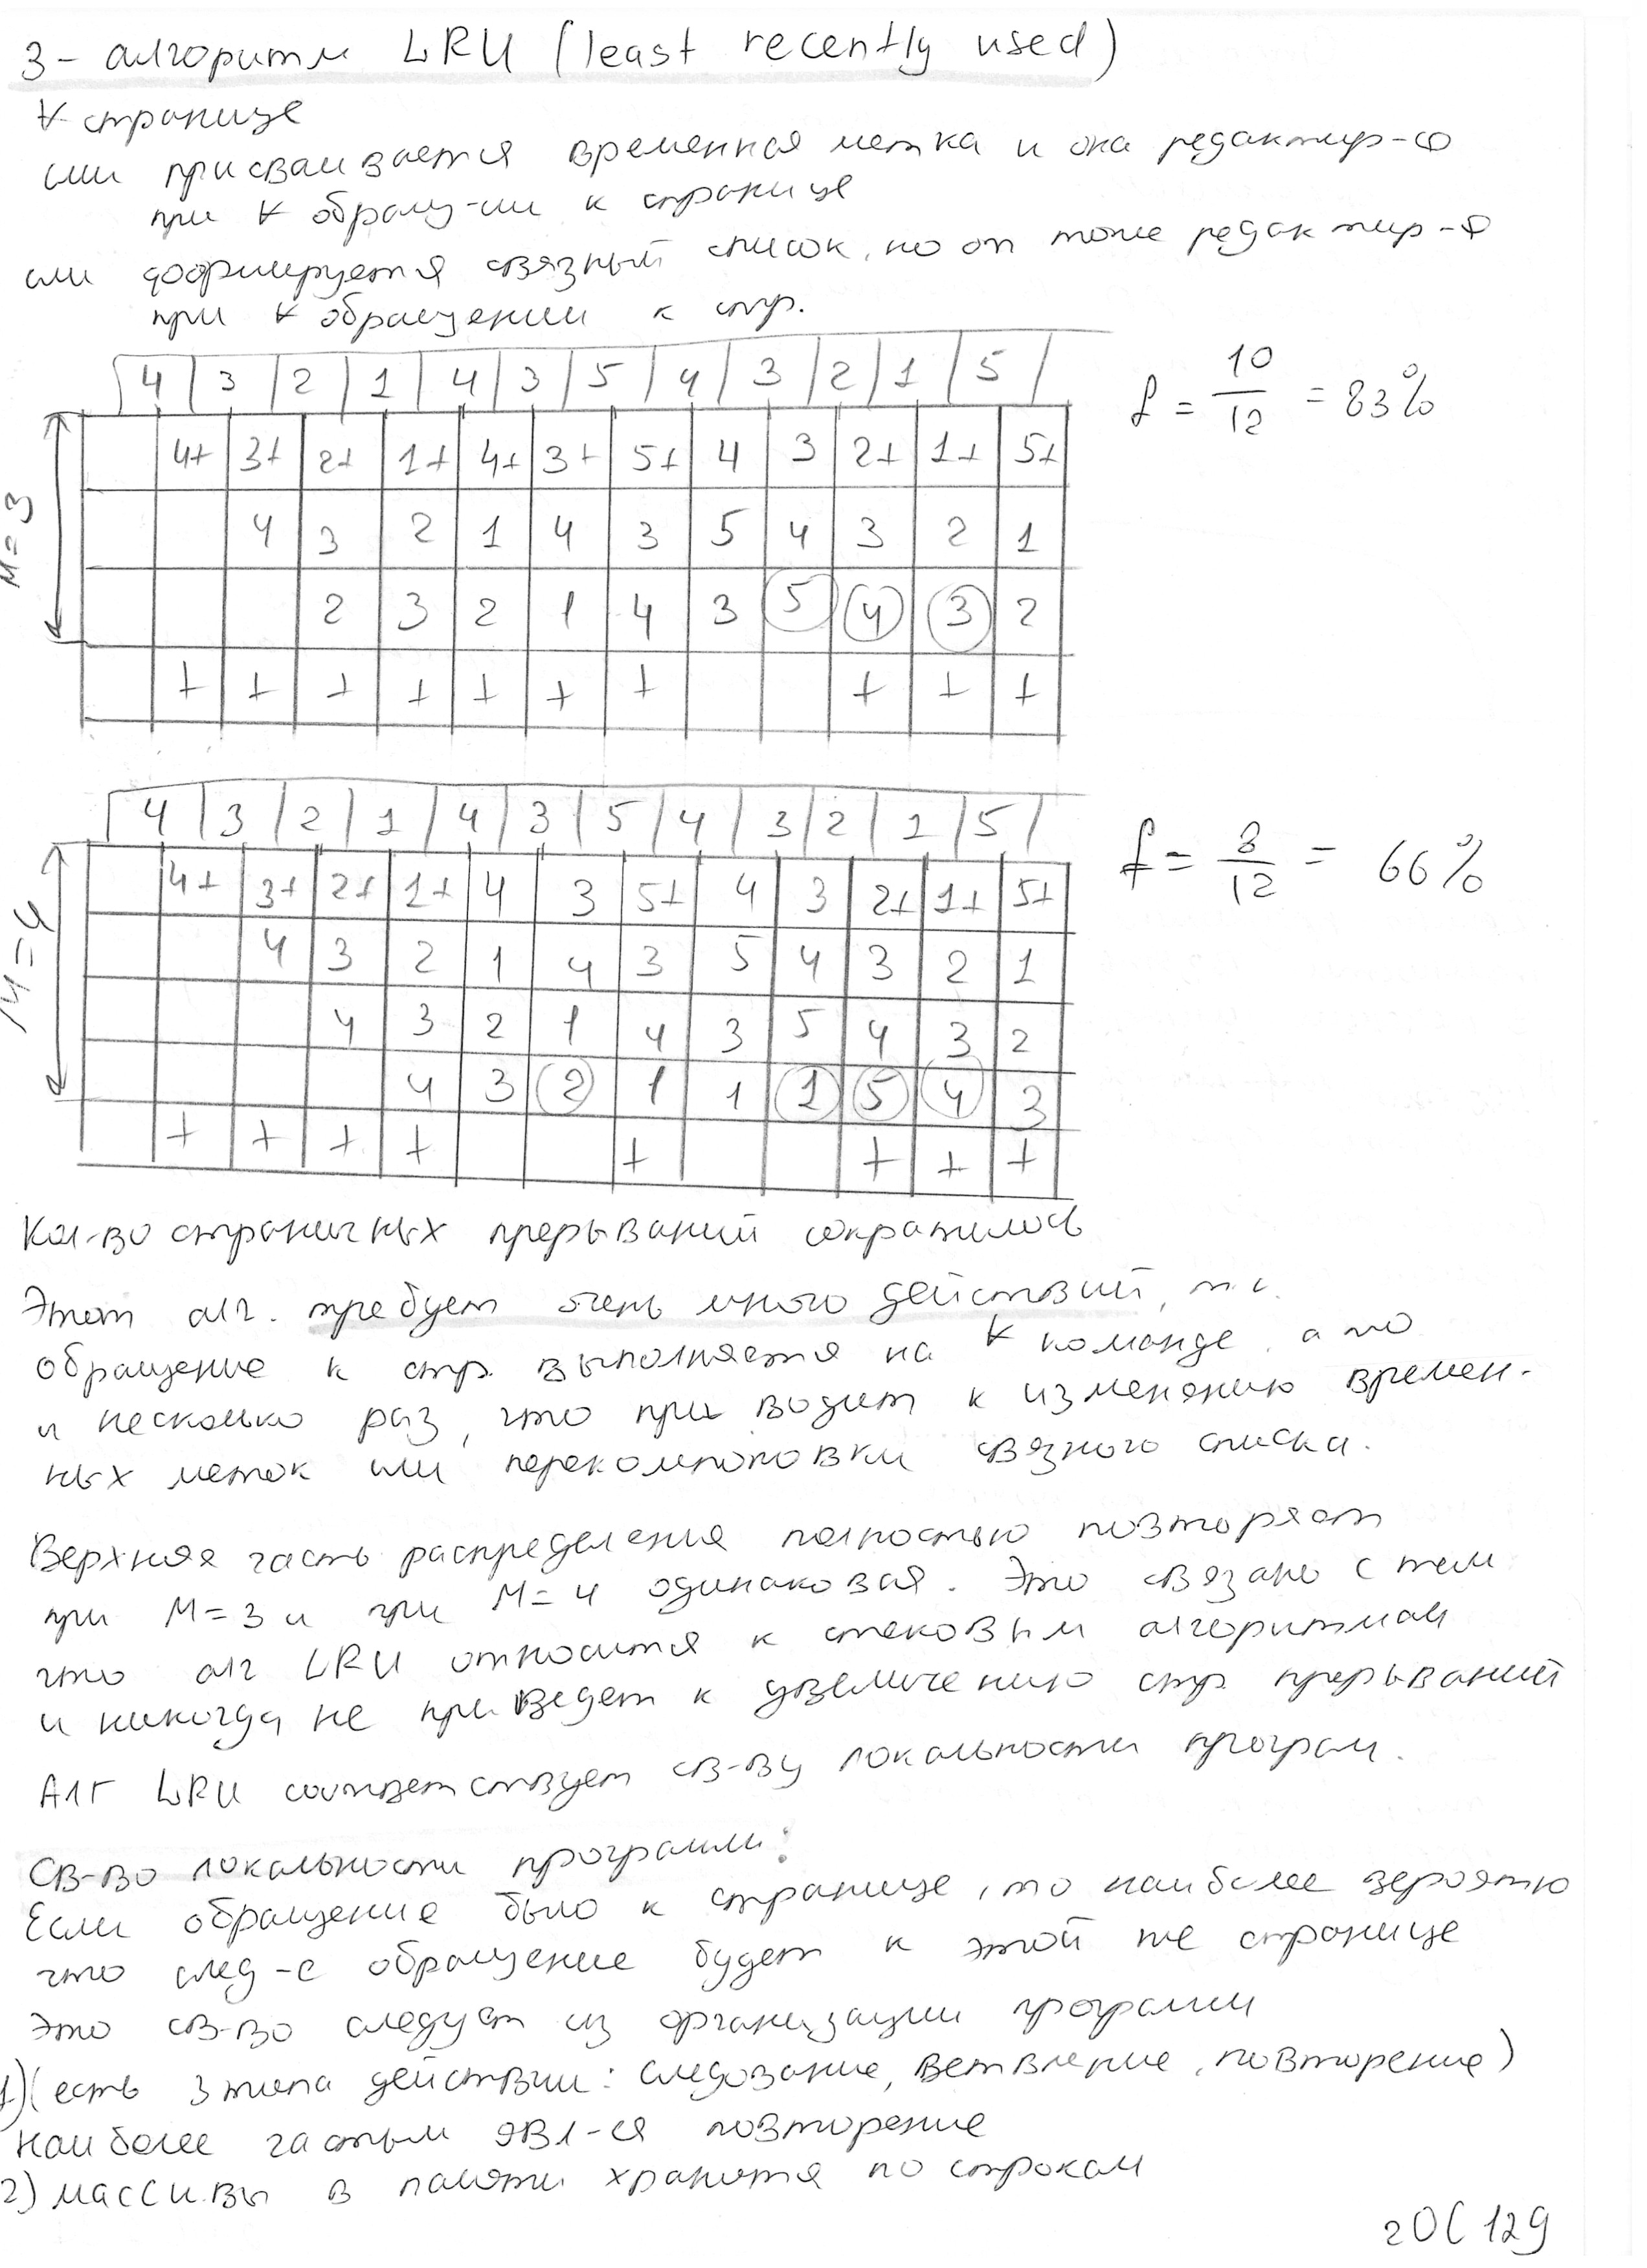 3 - алгоритм LRU (least recently used)
∀ странице
или присваивается временная метка и она редактир-ся
при ∀ обращ-ии к странице
или формируется связный список, но он тоже редактир-я
при ∀ обращении к стр.
4 3 2 1 4 3 5 4 3 2 1 5
f = 10/12 = 83%
M = 3
4+ 3+ 2+ 1+ 4+ 3+ 5+ 4 3 2+ 1+ 5+
4 3 2 1 4 3 5 4 3 2 1
2 3 2 1 4 3 5 4 3 2
+ + + + + + + + + +
4 3 2 1 4 3 5 4 3 2 1 5
f = 8/12 = 66%
M = 4
4+ 3+ 2+ 1+ 4 3 5+ 4 3 2+ 1+ 5+
4 3 2 1 4 3 5 4 3 2 1
4 3 2 1 4 3 5 4 3 2
4 3 2 1 1 1 5 4 3
+ + + + + + + +
Кол-во страничных прерываний сократилось
Этот алг. требует очень много действий, т.к.
обращение к стр. выполняется на ∀ команде, а то
и несколько раз, что приводит к изменению времен-
ных меток или перекомпоновки связного списка.
Верхняя часть распределения полностью повторяет
при M=3 и при M=4 одинаковая. Это связано с тем
что алг LRU относится к стековым алгоритмам
и никогда не приведет к увеличению стр. прерываний
Алг LRU соответствует св-ву локальности програм.
Св-во локальности программ:
Если обращение было к странице, то наиболее вероятно
что след-е обращение будет к этой же странице
Это св-во следует из организации программ
1) (есть 3 типа действии: следование, ветвление, повторение)
наиболее частым явл-ся повторение
2) массивы в памяти хранятся по строкам